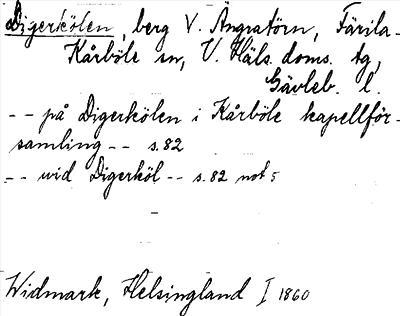 Digerkölen, berg V. Ängratörn, Färila-
Kårböle sn, V. Häls. doms. tg,
Gävleb. l.
-- på Digerkölen i Kårböle kapellför-
samling -- s. 82
-- wid Digerköl -- s. 82 not 5
Widmark, Helsingland I 1860